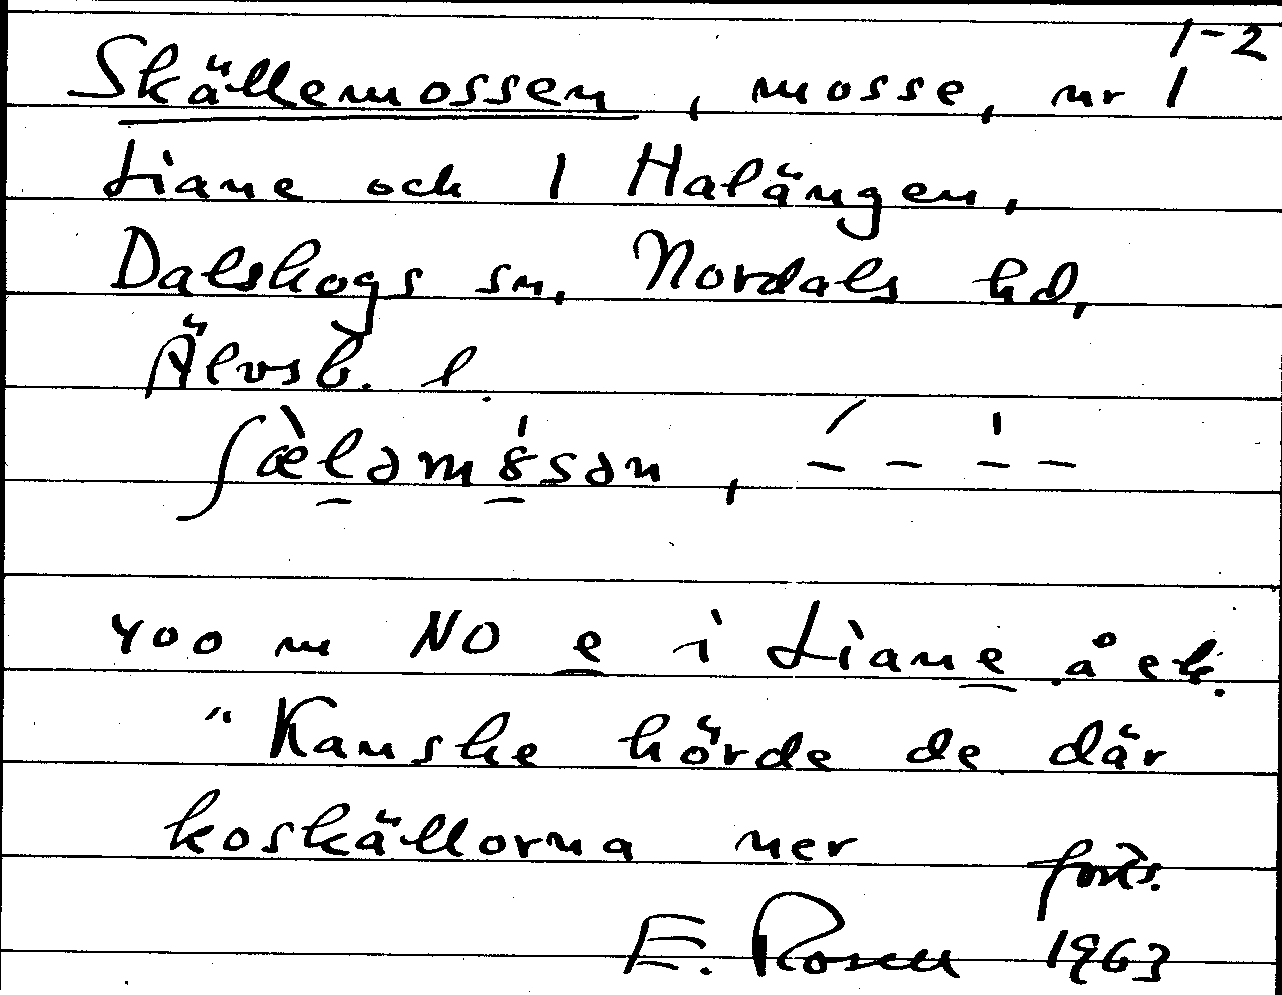 1-2
Skällemossen, mosse, nr 1
Liane och 1 Halängen,
Dalskogs sn, Nordals hd,
Älvsb. l.
ʃæ̀l̠əmö̠́sən, – – – –
400 m NO e i Liane å ek.
"Kanske hörde de där
koskällorna ner
forts.
E. Rosen 1963